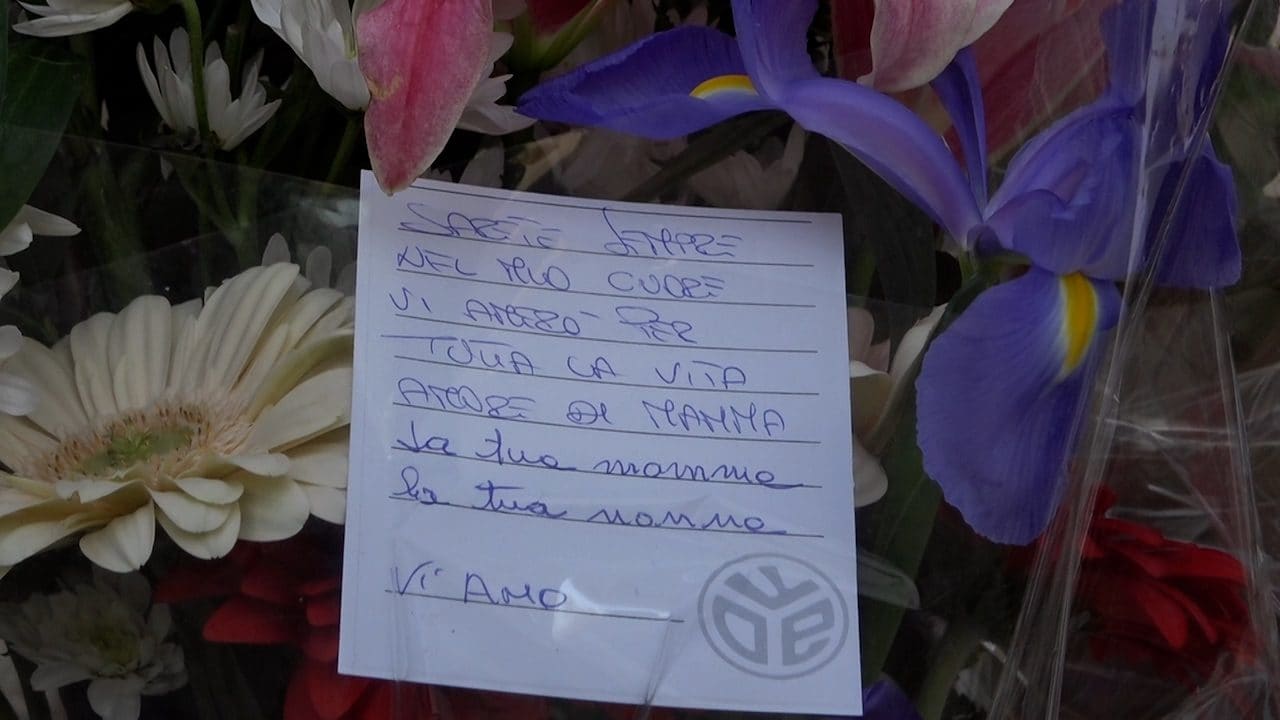 SARETE SEMPRE
NEL MIO CUORE
VI AMERO' PER
TUTTA LA VITA
AMORE DI MAMMA
La tua mamma
La tua nonna
VI AMO